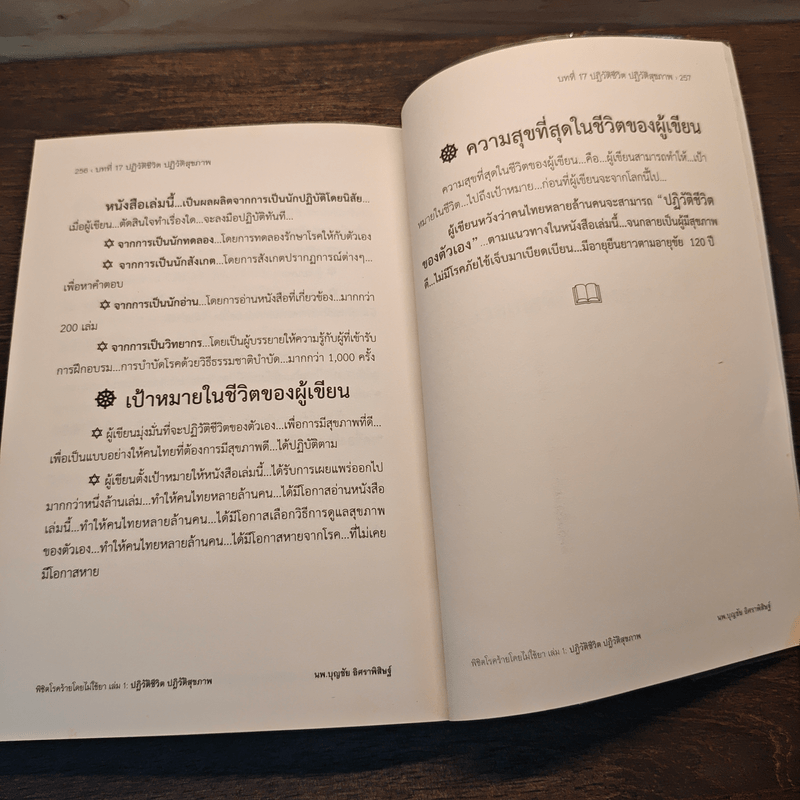 256 • บทที่ 17 ปฏิวัติชีวิต ปฏิวัติสุขภาพ
หนังสือเล่มนี้...เป็นผลผลิตจากการเป็นนักปฏิบัติโดยนิสัย...
เมื่อผู้เขียน...ตัดสินใจทำเรื่องใด...จะลงมือปฏิบัติทันที...
✡ จากการเป็นนักทดลอง...โดยการทดลองรักษาโรคให้กับตัวเอง
✡ จากการเป็นนักสังเกต...โดยการสังเกตปรากฏการณ์ต่างๆ...
เพื่อหาคำตอบ
✡ จากการเป็นนักอ่าน...โดยการอ่านหนังสือที่เกี่ยวข้อง...มากกว่า
200 เล่ม
✡ จากการเป็นวิทยากร...โดยเป็นผู้บรรยายให้ความรู้กับผู้ที่เข้ารับ
การฝึกอบรม...การบำบัดโรคด้วยวิธีธรรมชาติบำบัด...มากกว่า 1,000 ครั้ง
☸ เป้าหมายในชีวิตของผู้เขียน
✡ ผู้เขียนมุ่งมั่นที่จะปฏิวัติชีวิตของตัวเอง...เพื่อการมีสุขภาพที่ดี...
เพื่อเป็นแบบอย่างให้คนไทยที่ต้องการมีสุขภาพดี...ได้ปฏิบัติตาม
✡ ผู้เขียนตั้งเป้าหมายให้หนังสือเล่มนี้...ได้รับการเผยแพร่ออกไป
มากกว่าหนึ่งล้านเล่ม...ทำให้คนไทยหลายล้านคน...ได้มีโอกาสอ่านหนังสือ
เล่มนี้...ทำให้คนไทยหลายล้านคน...ได้มีโอกาสเลือกวิธีการดูแลสุขภาพ
ของตัวเอง...ทำให้คนไทยหลายล้านคน...ได้มีโอกาสหายจากโรค...ที่ไม่เคย
มีโอกาสหาย
พิชิตโรคร้ายโดยไม่ใช้ยา เล่ม 1: ปฏิวัติชีวิต ปฏิวัติสุขภาพ
นพ.บุญชัย อิศราพิสิษฐ์
บทที่ 17 ปฏิวัติชีวิต ปฏิวัติสุขภาพ • 257
☸ ความสุขที่สุดในชีวิตของผู้เขียน
ความสุขที่สุดในชีวิตของผู้เขียน...คือ...ผู้เขียนสามารถทำให้...เป้า
หมายในชีวิต...ไปถึงเป้าหมาย...ก่อนที่ผู้เขียนจะจากโลกนี้ไป...
ผู้เขียนหวังว่าคนไทยหลายล้านคนจะสามารถ “ปฏิวัติชีวิต
ของตัวเอง” ...ตามแนวทางในหนังสือเล่มนี้...จนกลายเป็นผู้มีสุขภาพ
ดี...ไม่มีโรคภัยไข้เจ็บมาเบียดเบียน...มีอายุยืนยาวตามอายุขัย 120 ปี
พิชิตโรคร้ายโดยไม่ใช้ยา เล่ม 1: ปฏิวัติชีวิต ปฏิวัติสุขภาพ
นพ.บุญชัย อิศราพิสิษฐ์